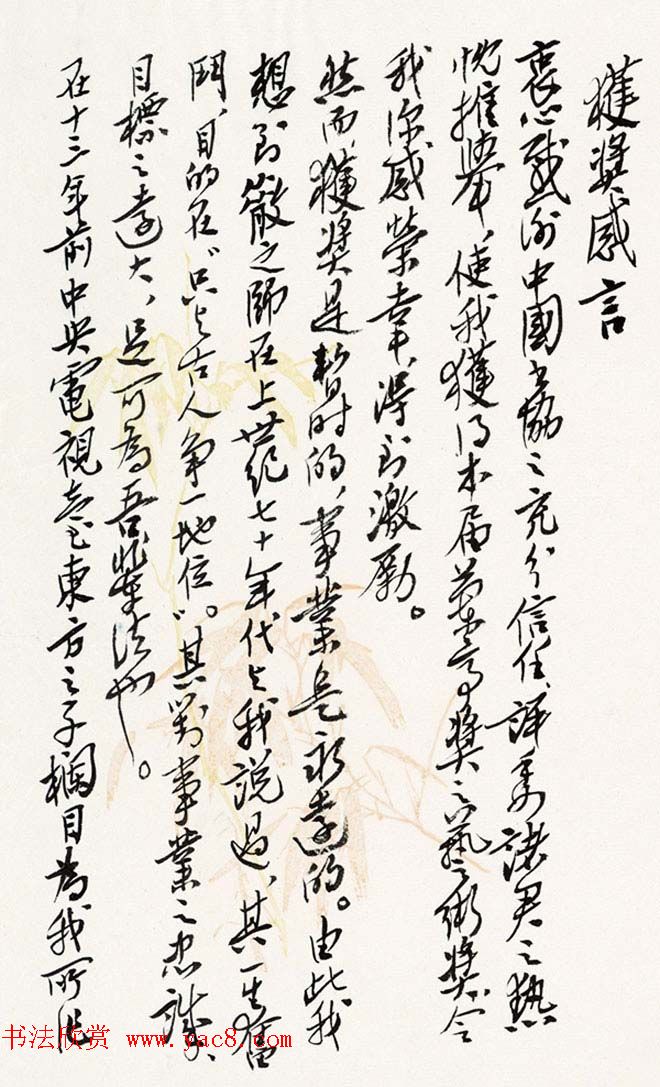 獲獎感言
衷心感谢中國书協之充分信任、評委諸君之热
忱推舉、使我獲得本届蘭亭獎之藝術獎、令
我深感榮幸、得到激勵。
然而、獲獎是暂时的、事業是永遠的。由此我
想到嚴之師在上世纪七十年代与我説過、其一生奮
鬥、目的在“只与古人争一地位”。其對事業之忠誠、
目標之遠大、足可為吾輩法也。
在十三年前中央電視臺東方之子欄目為我所
书法欣赏 www.yac8.com